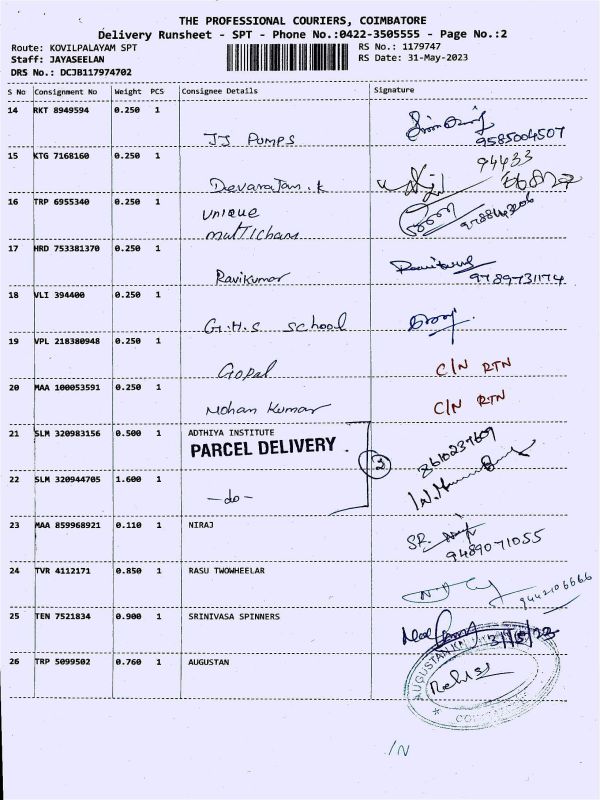 THE PROFESSIONAL COURIERS, COIMBATORE
Delivery Runsheet - SPT - Phone No.:0422-3505555 - Page No.:2
Route: KOVILPALAYAM SPT
RS No.: 1179747
Staff: JAYASEELAN
RS Date: 31-May-2023
DRS No.: DCJB117974702
S No Consignment No Weight PCS Consignee Details Signature
14 RKT 8949594 0.250 1
JJ PUMPS
9585004507
15 KTG 7168160 0.250 1
94433
Devarajan.k
16 TRP 6955340 0.250 1
unique
17 HRD 753381370 0.250 1
Ravikumar
9789731174
18 VLI 394400 0.250 1
G.H.S school
19 VPL 218380948 0.250 1
Gopal C/N RTN
20 MAA 100053591 0.250 1
Mohan Kumar C/N RTN
21 SLM 320983156 0.500 1 ADTHIYA INSTITUTE
PARCEL DELIVERY
2
22 SLM 320944705 1.600 1
-do-
23 MAA 859968921 0.110 1 NIRAJ
SR.
9489071055
24 TVR 4112171 0.850 1 RASU TWOWHEELAR
9442106666
25 TEN 7521834 0.900 1 SRINIVASA SPINNERS
31/5/23
26 TRP 5099502 0.760 1 AUGUSTAN
IN